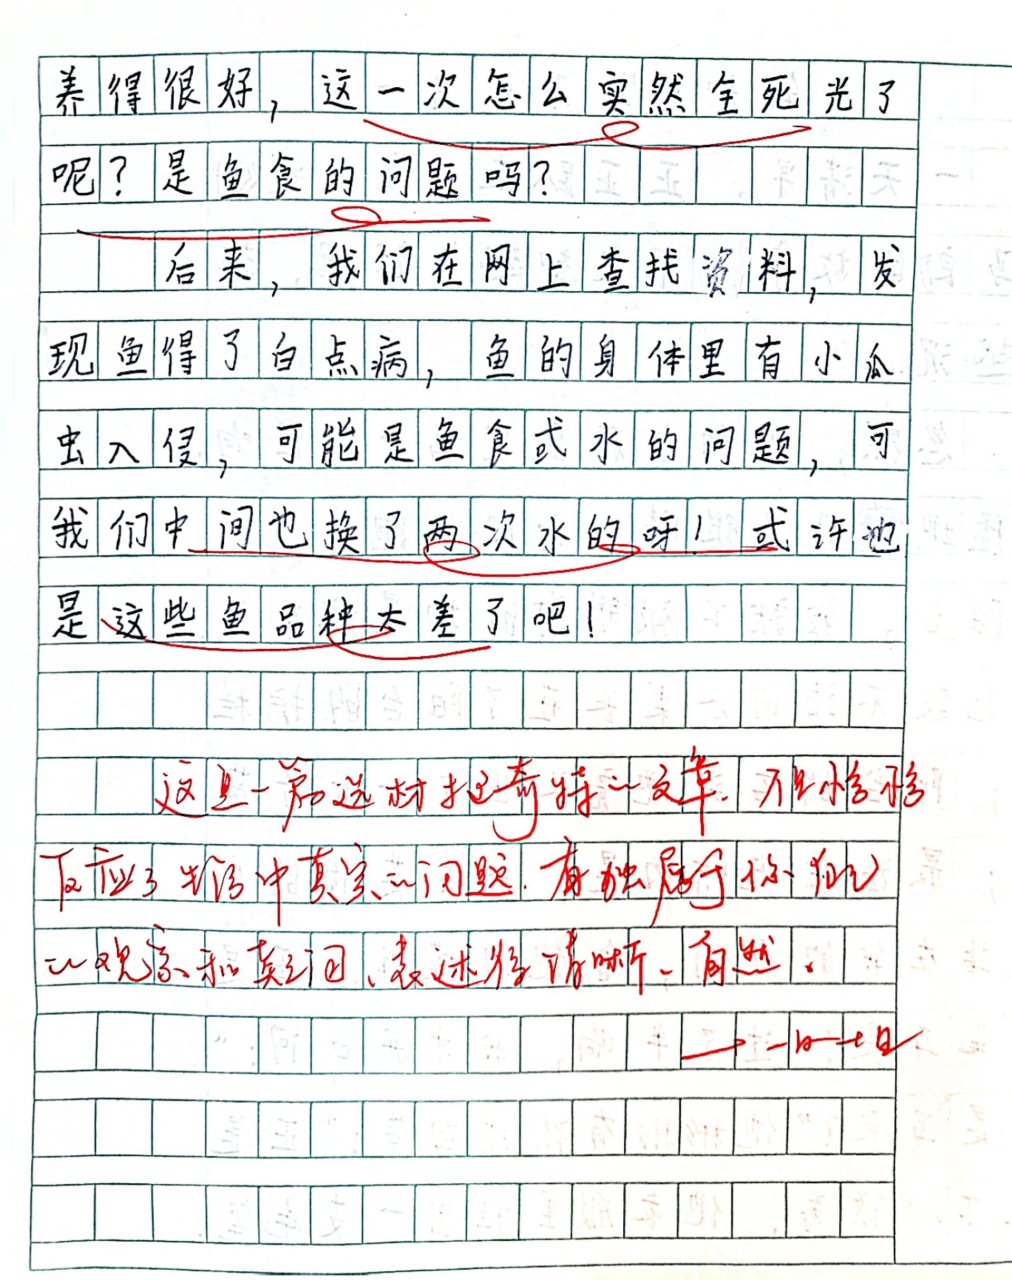 养得很好，这一次怎么突然全死光了
呢？是鱼食的问题吗？
后来，我们在网上查找资料，发
现鱼得了白点病，鱼的身体里有小瓜
虫入侵，可能是鱼食或水的问题，可
我们中间也换了两次水的呀！或许也
是这些鱼品种太差了吧！
这是一篇选材挺奇特的文章，不但
反应了生活中真实的问题，有独属于你
的观察和疑问，表述很清晰、自然。